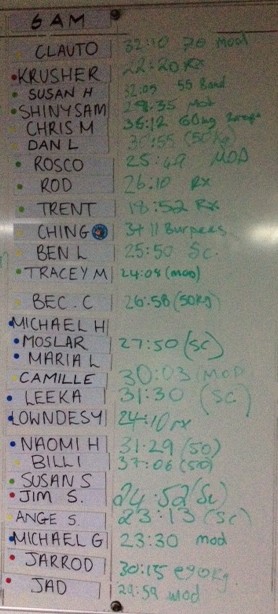 6 AM
CLAUTO 32:10 20 mod
KRUSHER 22:20 RX
SUSAN H 32:09 55 Band
SHINYSAM 28:35 Mod
CHRIS M 36:12 60kg
DAN L 30:55 (50kg)
ROSCO 25:49 MOD
ROD 26:10 RX
TRENT 18:52 RX
CHING 3+11 Burpees
BEN L 25:50 Sc.
TRACEY M 24:08 (mod)
BEC.C 26:58 (50kg)
MICHAEL H
MOSLAR 27:50 (SC)
MARIA L
CAMILLE 30:03 (MOD
LEEKA 31:30 (SC)
LOWNDESY 24:10 rx
NAOMI H 31:29 (50)
BILLI 37:06 (50)
SUSAN S
JIM S. 24:52 (Sc)
ANGE S 23:13 (Sc)
MICHAEL G 23:30 mod
JARROD 30:15 @90kg.
JAD 29:59 mod